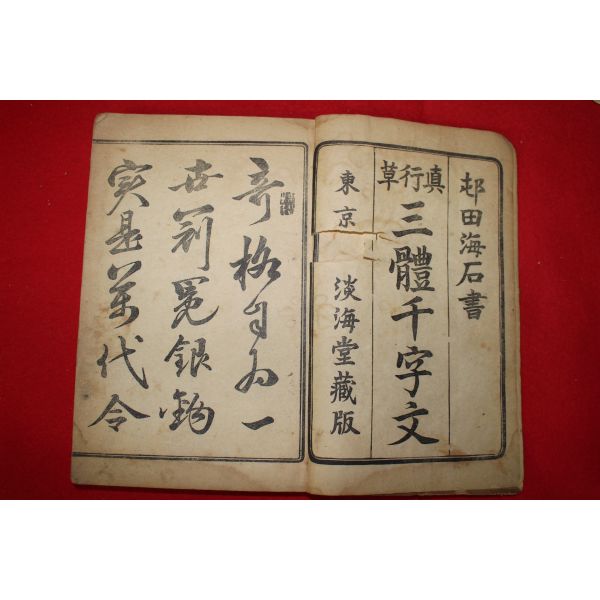 邨田海石書
眞行草
三體千字文
東京 淡海堂藏版
奇格自為一
世冠冕銀鈎
実是萬代令